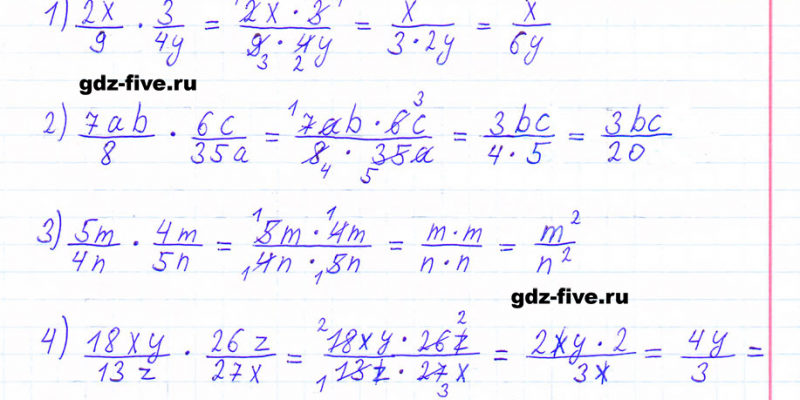 1) 2x/9 · 3/4y = 2x · 3/9 · 4y = x/3 · 2y = x/6y
gdz-five.ru
2) 7ab/8 · 6c/35a = 7ab · 6c/8 · 35a = 3bc/4 · 5 = 3bc/20
3) 5m/4n · 4m/5n = 5m · 4m/4n · 5n = m · m/n · n = m²/n²
gdz-five.ru
4) 18xy/13z · 26z/27x = 18xy · 26z/13z · 27x = 2xy · 2/3x = 4y/3 =